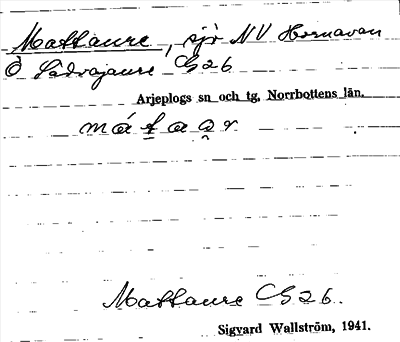 Mattaure, sjö NV Hornavan
Ö Sädvajaure CG26
Arjeplogs sn och tg, Norrbottens län.
Mattaure CG26.
Sigvard Wallström, 1941.